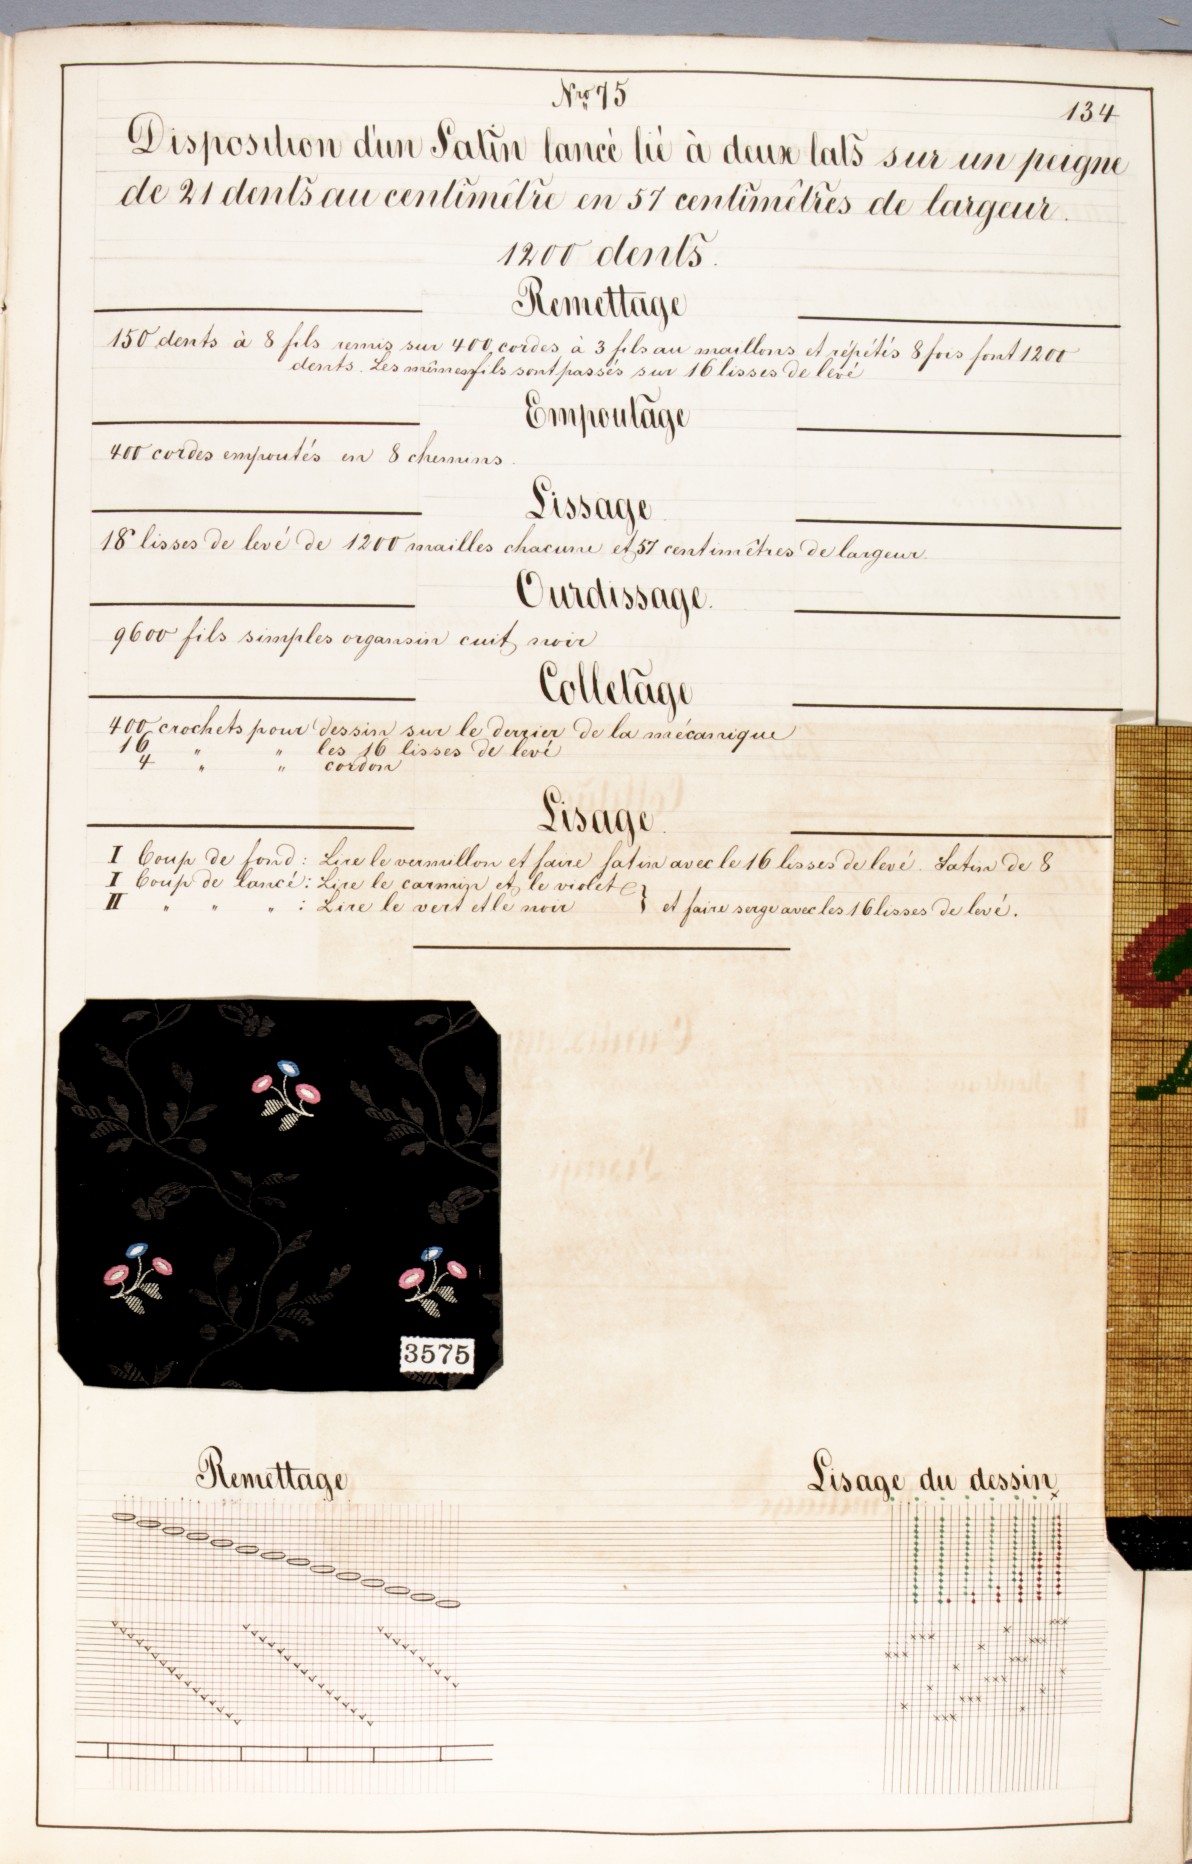 Nro 75
134
Disposition d'un Satin lancé lié à deux lats sur un peigne
de 21 dents au centimètre en 57 centimètres de largeur.
1200 dents.
Remettage
150 dents à 8 fils remis sur 400 cordes à 3 fils au maillons et répétés 8 fois font 1200
dents. Les mêmes fils sont passés sur 16 lisses de levé
Empoutage
400 cordes empoutés en 8 chemins.
Lissage
18 lisses de levé de 1200 mailles chacune et 57 centimètres de largeur.
Ourdissage.
9600 fils simples organsin cuit noir
Colletage
400 crochets pour dessin sur le derrier de la mécanique
16 " " les 16 lisses de levé
4 " " cordon
Lisage.
I Coup de fond: Lire le vermillon et faire satin avec le 16 lisses de levé. Satin de 8
I Coup de lancé: Lire le carmin et le violet
II " " " : Lire le vert et le noir } et faire serge avec les 16 lisses de levé.
3575
Remettage
Lisage du dessin